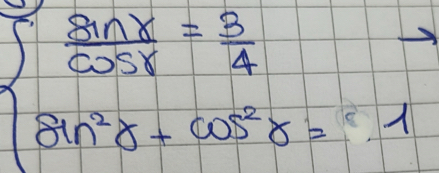 sinγ/cosγ = 3/4 →
sin²γ + cos²γ = 1